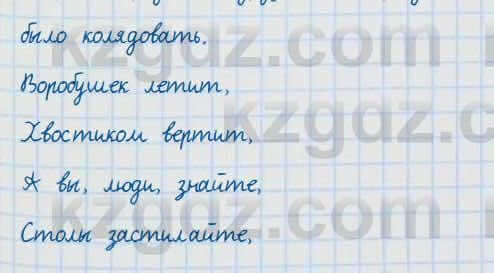 было колядовать.
Воробушек летит,
Хвостиком вертит,
А вы, люди, знайте,
Столы застилайте,
kzgdz.com
kzgdz.com
kzgdz.com
kzgdz.com